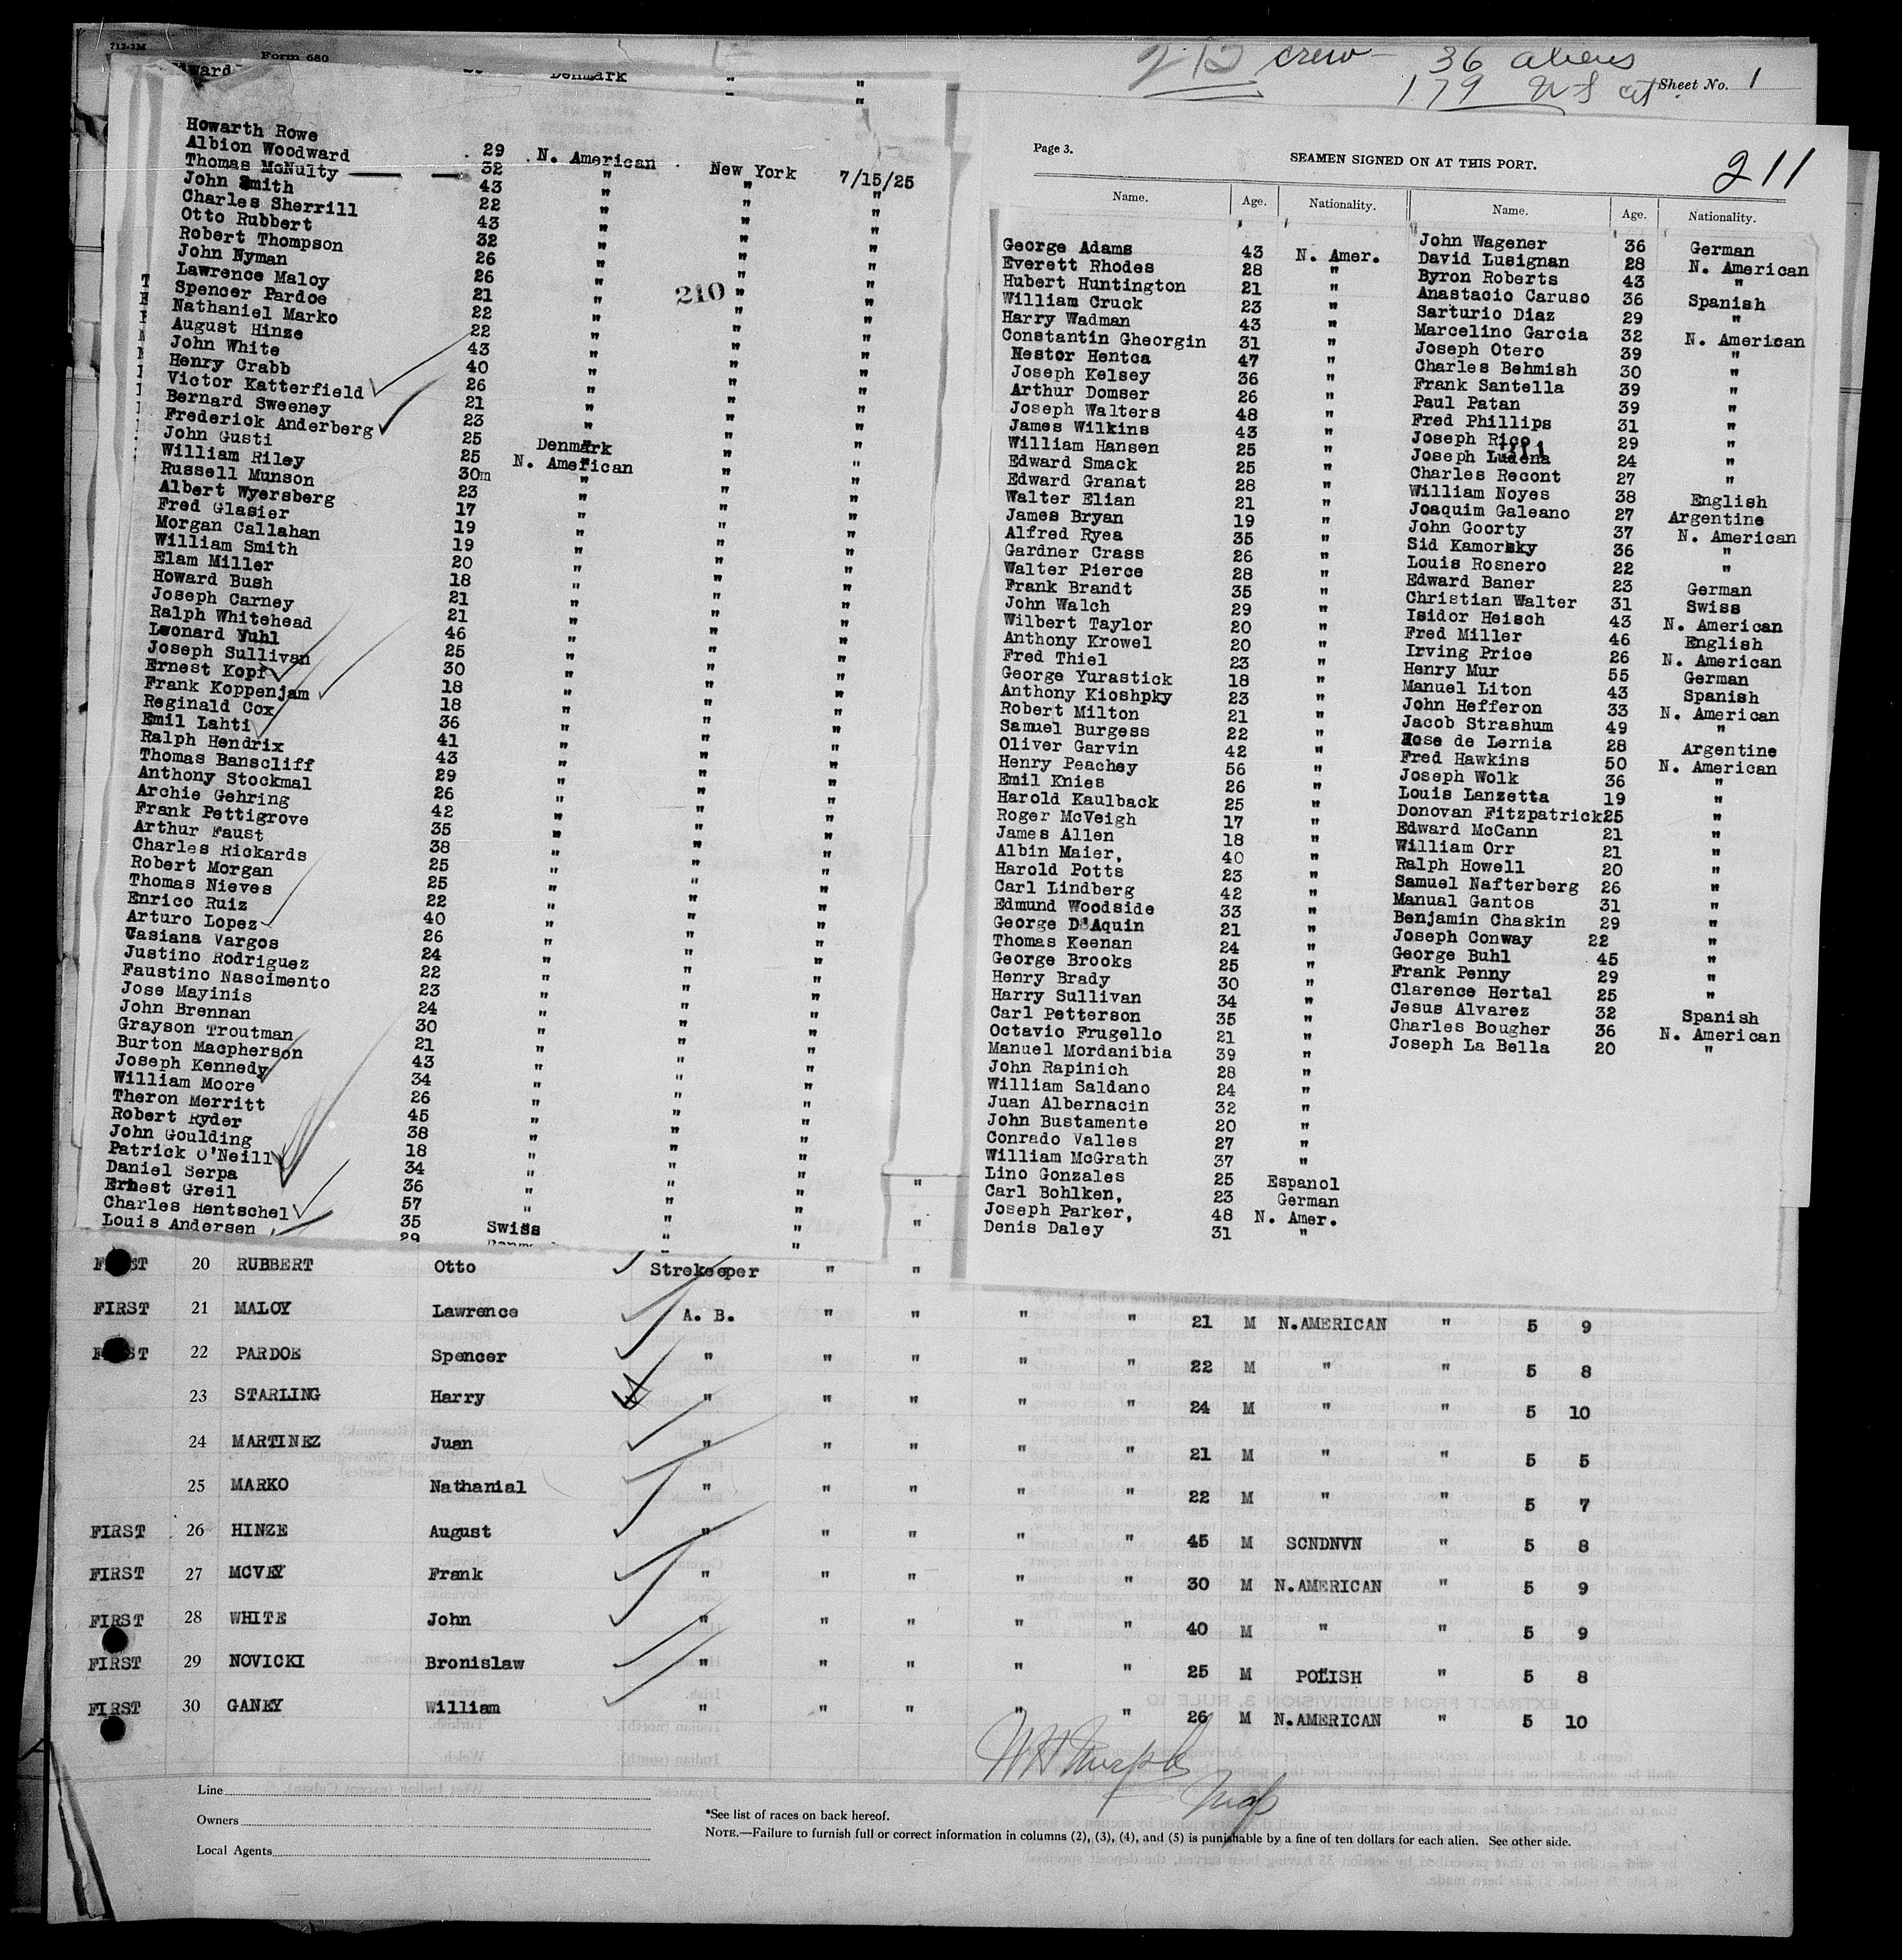 712-2M Form 680
Denmark "
212 crew - 36 aliens
179 U S cit
Sheet No. 1
Howarth Rowe 29 N. American New York 7/15/25
Albion Woodward 32 " " "
Thomas McNulty 43 " " "
John Smith 22 " " "
Charles Sherrill 43 " " "
Otto Rubbert 32 " " "
Robert Thompson 26 " " "
John Nyman 26 " " "
Lawrence Maloy 21 " " "
210
Spencer Pardoe 22 " " "
Nathaniel Marko 22 " " "
August Hinze 43 " " "
John White 40 " " "
Henry Crabb 26 " " "
Victor Katterfield 21 " " "
Bernard Sweeney 23 " " "
Frederick Anderberg 25 Denmark " "
John Gusti 25 N. American " "
William Riley 30m " " "
Russell Munson 23 " " "
Albert Wyersberg 17 " " "
Fred Glasier 19 " " "
Morgan Callahan 19 " " "
William Smith 20 " " "
Elam Miller 18 " " "
Howard Bush 21 " " "
Joseph Carney 21 " " "
Ralph Whitehead 46 " " "
Leonard Yuhl 25 " " "
Joseph Sullivan 30 " " "
Ernest Kopf 18 " " "
Frank Koppenjam 18 " " "
Reginald Cox 36 " " "
Emil Lahti 41 " " "
Ralph Hendrix 43 " " "
Thomas Banscliff 29 " " "
Anthony Stockmal 26 " " "
Archie Gehring 42 " " "
Frank Pettigrove 35 " " "
Arthur Faust 38 " " "
Charles Rickards 25 " " "
Robert Morgan 25 " " "
Thomas Nieves 22 " " "
Enrico Ruiz 40 " " "
Arturo Lopez 26 " " "
Casiana Vargos 24 " " "
Justino Rodriguez 22 " " "
Faustino Nascimento 23 " " "
Jose Mayinis 24 " " "
John Brennan 30 " " "
Grayson Troutman 21 " " "
Burton Macpherson 43 " " "
Joseph Kennedy 34 " " "
William Moore 26 " " "
Theron Merritt 45 " " "
Robert Ryder 38 " " "
John Goulding 18 " " "
Patrick O'Neill 34 " " "
Daniel Serpa 36 " " "
Ernest Greil 57 " " "
Charles Hentschel 35 Swiss " "
Louis Andersen 29 " "
Page 3. SEAMEN SIGNED ON AT THIS PORT. 211
Name. Age. Nationality. Name. Age. Nationality.
George Adams 43 N. Amer.
Everett Rhodes 28 "
Hubert Huntington 21 "
William Cruck 23 "
Harry Wadman 43 "
Constantin Gheorgin 31 "
Nestor Hentca 47 "
Joseph Kelsey 36 "
Arthur Domser 26 "
Joseph Walters 48 "
James Wilkins 43 "
William Hansen 25 "
Edward Smack 25 "
Edward Granat 28 "
Walter Elian 21 "
James Bryan 19 "
Alfred Ryea 35 "
Gardner Crass 26 "
Walter Pierce 28 "
Frank Brandt 35 "
John Walch 29 "
Wilbert Taylor 20 "
Anthony Krowel 20 "
Fred Thiel 23 "
George Yurastick 18 "
Anthony Kioshpky 23 "
Robert Milton 21 "
Samuel Burgess 22 "
Oliver Garvin 42 "
Henry Peachey 56 "
Emil Knies 26 "
Harold Kaulback 25 "
Roger McVeigh 17 "
James Allen 18 "
Albin Maier, 40 "
Harold Potts 23 "
Carl Lindberg 42 "
Edmund Woodside 33 "
George D'Aquin 21 "
Thomas Keenan 24 "
George Brooks 25 "
Henry Brady 30 "
Harry Sullivan 34 "
Carl Petterson 35 "
Octavio Frugello 21 "
Manuel Mordanibia 39 "
John Rapinich 28 "
William Saldano 24 "
Juan Albernacin 32 "
John Bustamente 20 "
Conrado Valles 27 "
William McGrath 37 "
Lino Gonzales 25 Espanol
Carl Bohlken, 23 German
Joseph Parker, 48 N. Amer.
Denis Daley 31 "
John Wagener 36 German
David Lusignan 28 N. American
Byron Roberts 43 "
Anastacio Caruso 36 Spanish
Sarturio Diaz 29 "
Marcelino Garcia 32 N. American
Joseph Otero 39 "
Charles Behmish 30 "
Frank Santella 39 "
Paul Patan 39 "
Fred Phillips 31 "
Joseph Rico 29 "
211
Joseph Ludena 24 "
Charles Recont 27 "
William Noyes 38 English
Joaquim Galeano 27 Argentine
John Goorty 37 N. American
Sid Kamorsky 36 "
Louis Rosnero 22 "
Edward Baner 23 German
Christian Walter 31 Swiss
Isidor Heisch 43 N. American
Fred Miller 46 English
Irving Price 26 N. American
Henry Mur 55 German
Manuel Liton 43 Spanish
John Hefferon 33 N. American
Jacob Strashum 49 "
Hose de Lernia 28 Argentine
Fred Hawkins 50 N. American
Joseph Wolk 36 "
Louis Lanzetta 19 "
Donovan Fitzpatrick 25 "
Edward McCann 21 "
William Orr 21 "
Ralph Howell 20 "
Samuel Nafterberg 26 "
Manual Gantos 31 "
Benjamin Chaskin 29 "
Joseph Conway 22 "
George Buhl 45 "
Frank Penny 29 "
Clarence Hertal 25 "
Jesus Alvarez 32 Spanish
Charles Bougher 36 N. American
Joseph La Bella 20 "
FIRST 20 RUBBERT Otto Strekeeper " "
FIRST 21 MALOY Lawrence A. B. " " " " 21 M N.AMERICAN " 5 9
FIRST 22 PARDOE Spencer " " " " " 22 M " " 5 8
23 STARLING Harry " " " " " 24 M " " 5 10
24 MARTINEZ Juan " " " " " 21 M " " 5 5
25 MARKO Nathanial " " " " " 22 M " " 5 7
FIRST 26 HINZE August " " " " " 45 M SCNDNVN " 5 8
FIRST 27 MCVEY Frank " " " " " 30 M N.AMERICAN " 5 9
FIRST 28 WHITE John " " " " " 40 M " " 5 9
FIRST 29 NOVICKI Bronislaw " " " " " 25 M POLISH " 5 8
FIRST 30 GANEY William " " " " " 26 M N.AMERICAN " 5 10
Line
Owners
Local Agents
*See list of races on back hereof.
NOTE.—Failure to furnish full or correct information in columns (2), (3), (4), and (5) is punishable by a fine of ten dollars for each alien. See other side.